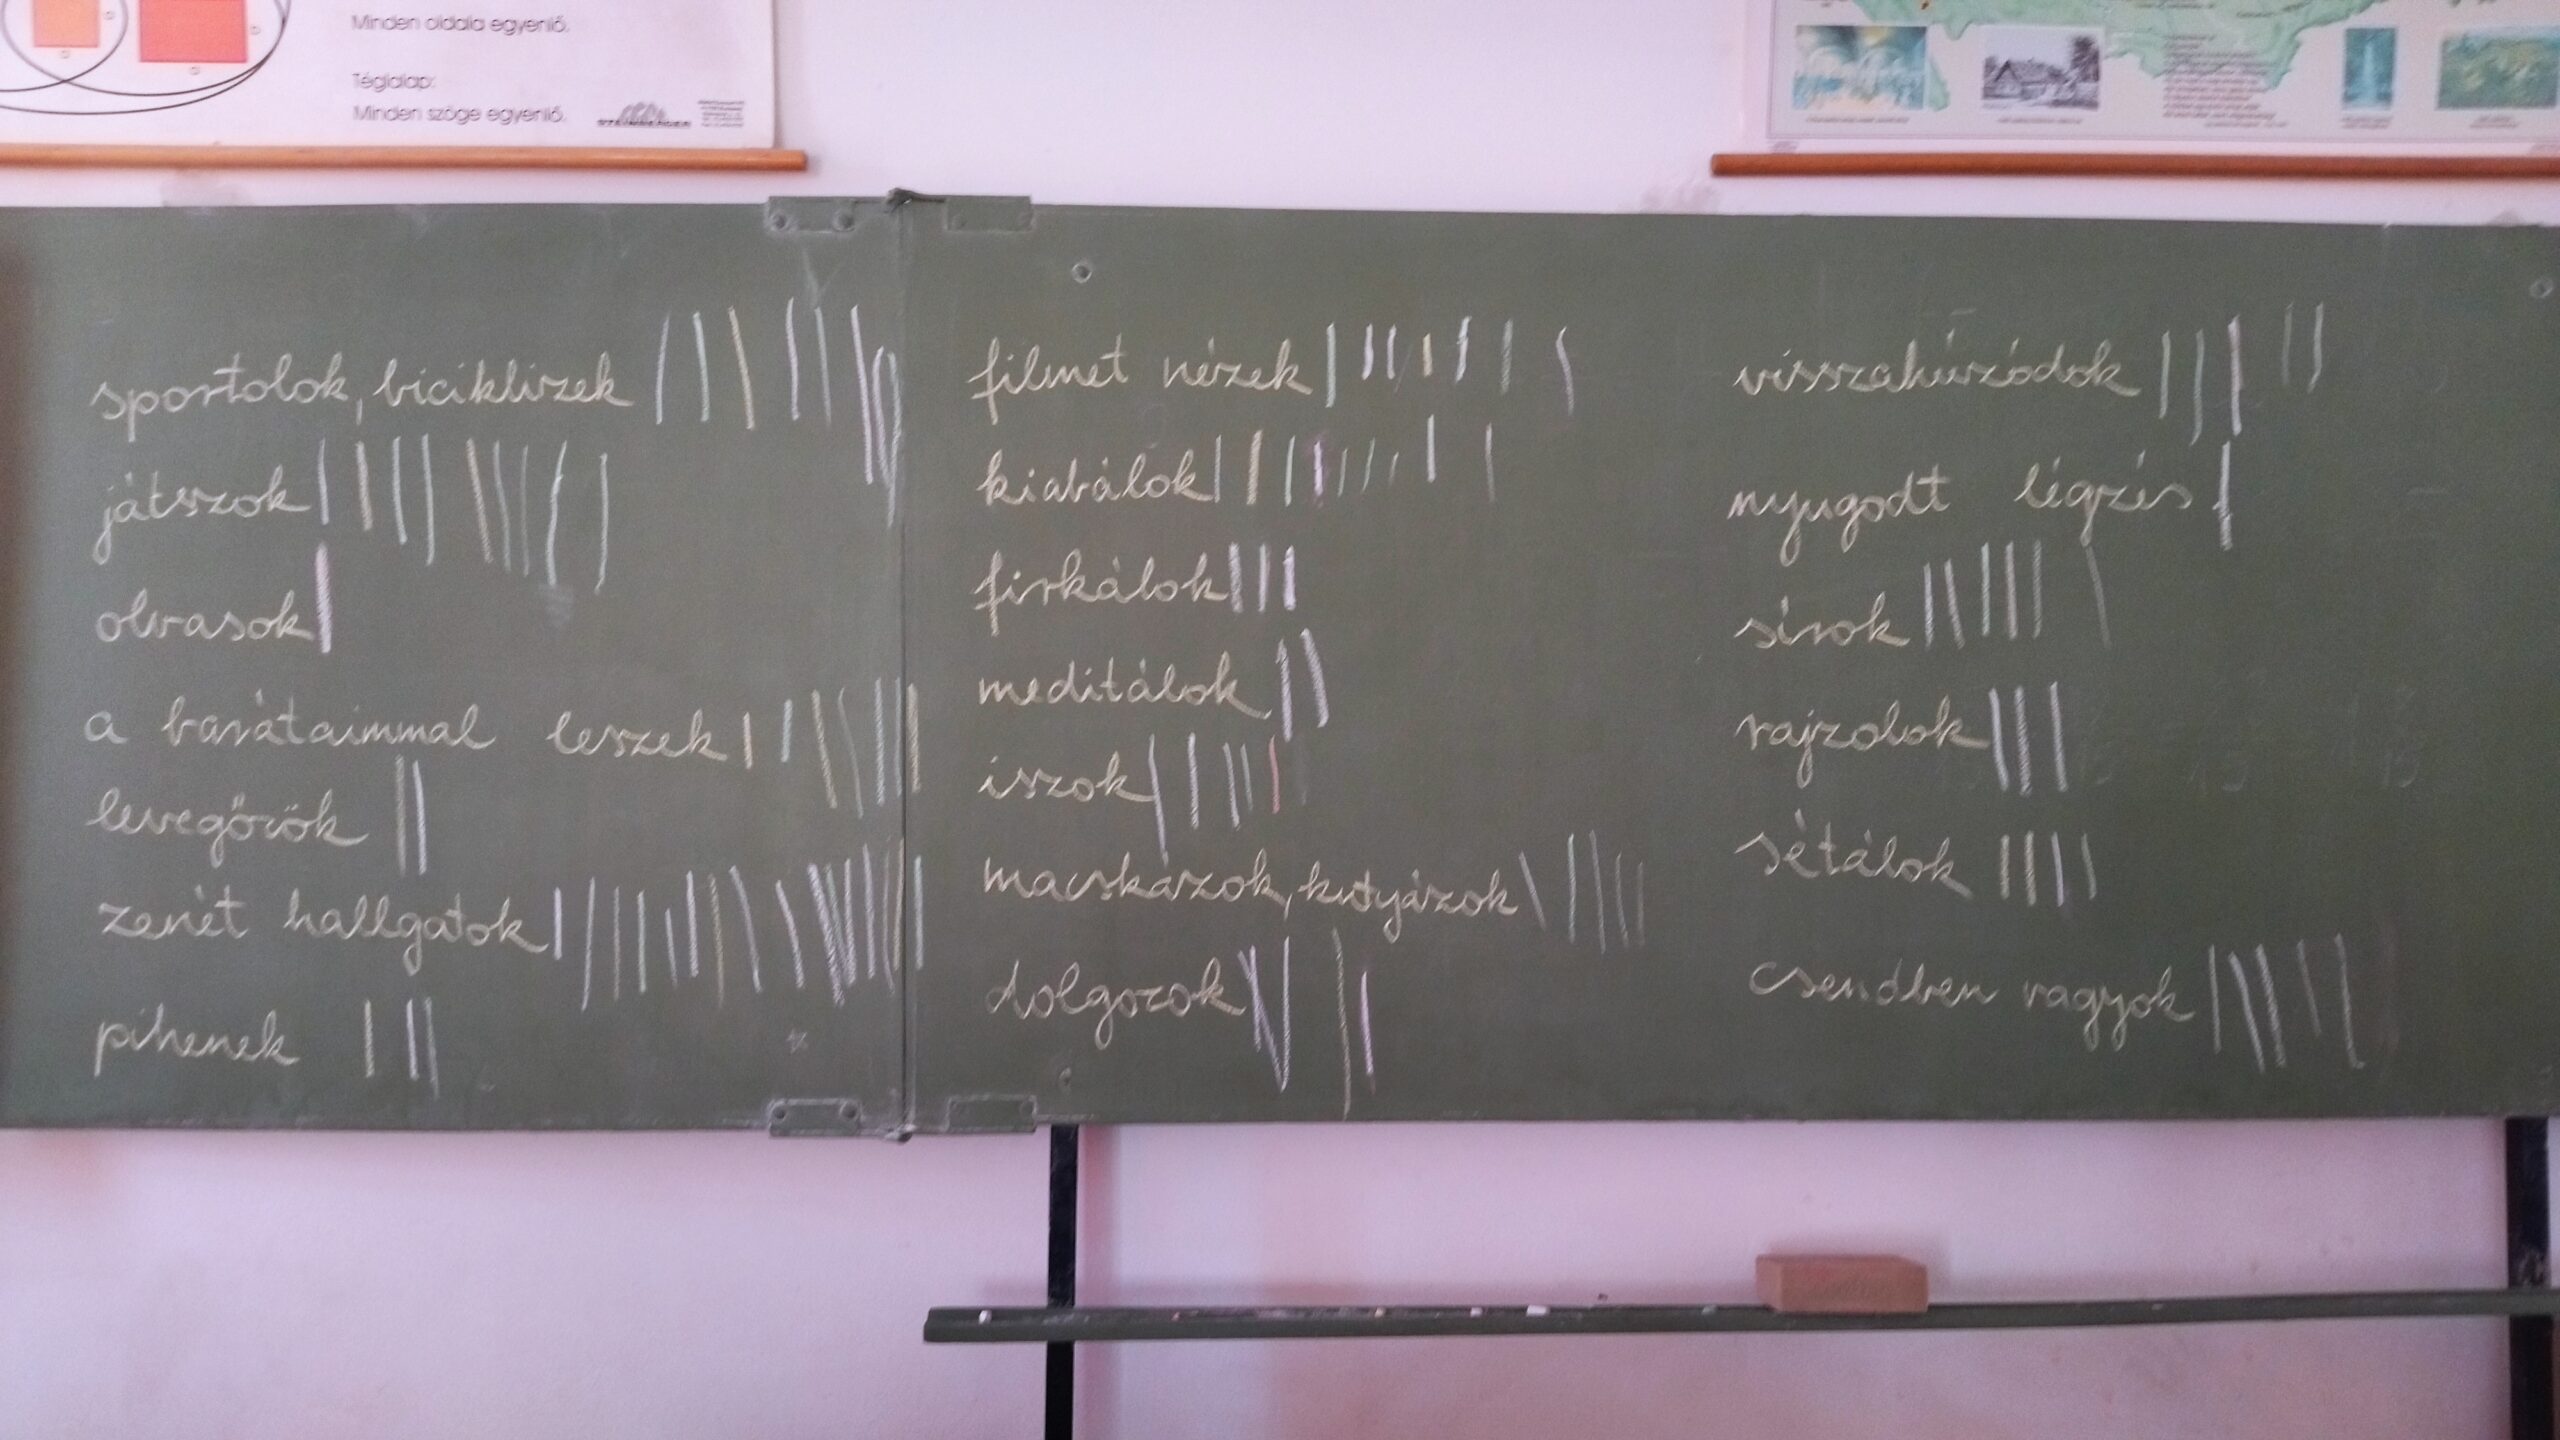 Minden oldala egyenlő.
Téglalap:
Minden szöge egyenlő.
sportolok, biciklizek
játszok
olvasok
a barátaimmal leszek
levegőzök
zenét hallgatok
pihenek
filmet nézek
kiabálok
firkálok
meditálok
iszok
macskázok, kutyázok
dolgozok
visszahúzódok
nyugodt légzés
sírok
rajzolok
sétálok
csendben vagyok